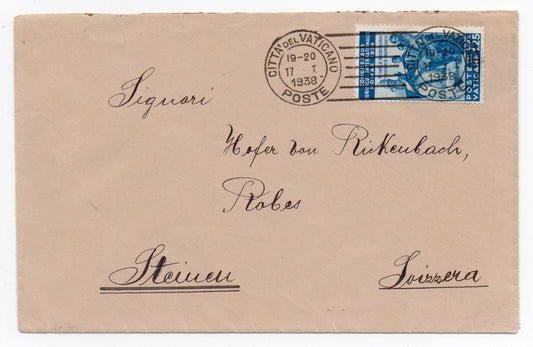 CITTÀ DEL VATICANO
19-20
17 I
1938
POSTE
CITTÀ DEL VATICANO
19-20
17 I
1938
POSTE
POSTE
VATICANE
Signori
Hofer von Rickenbach,
Robes
Steinen Svizzera